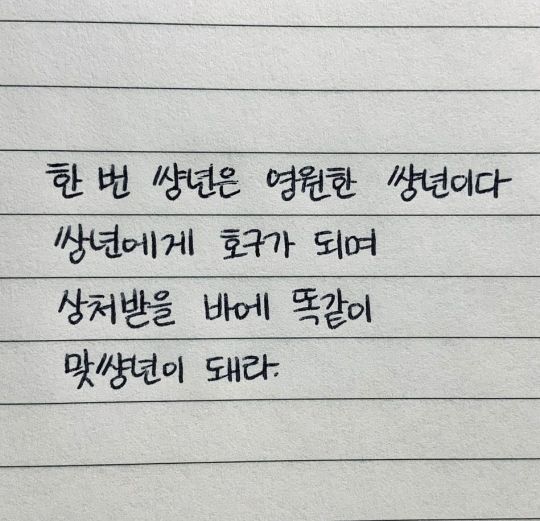 한 번 썅년은 영원한 썅년이다
쌍년에게 호구가 되며
상처받을 바에 똑같이
맞썅년이 돼라.